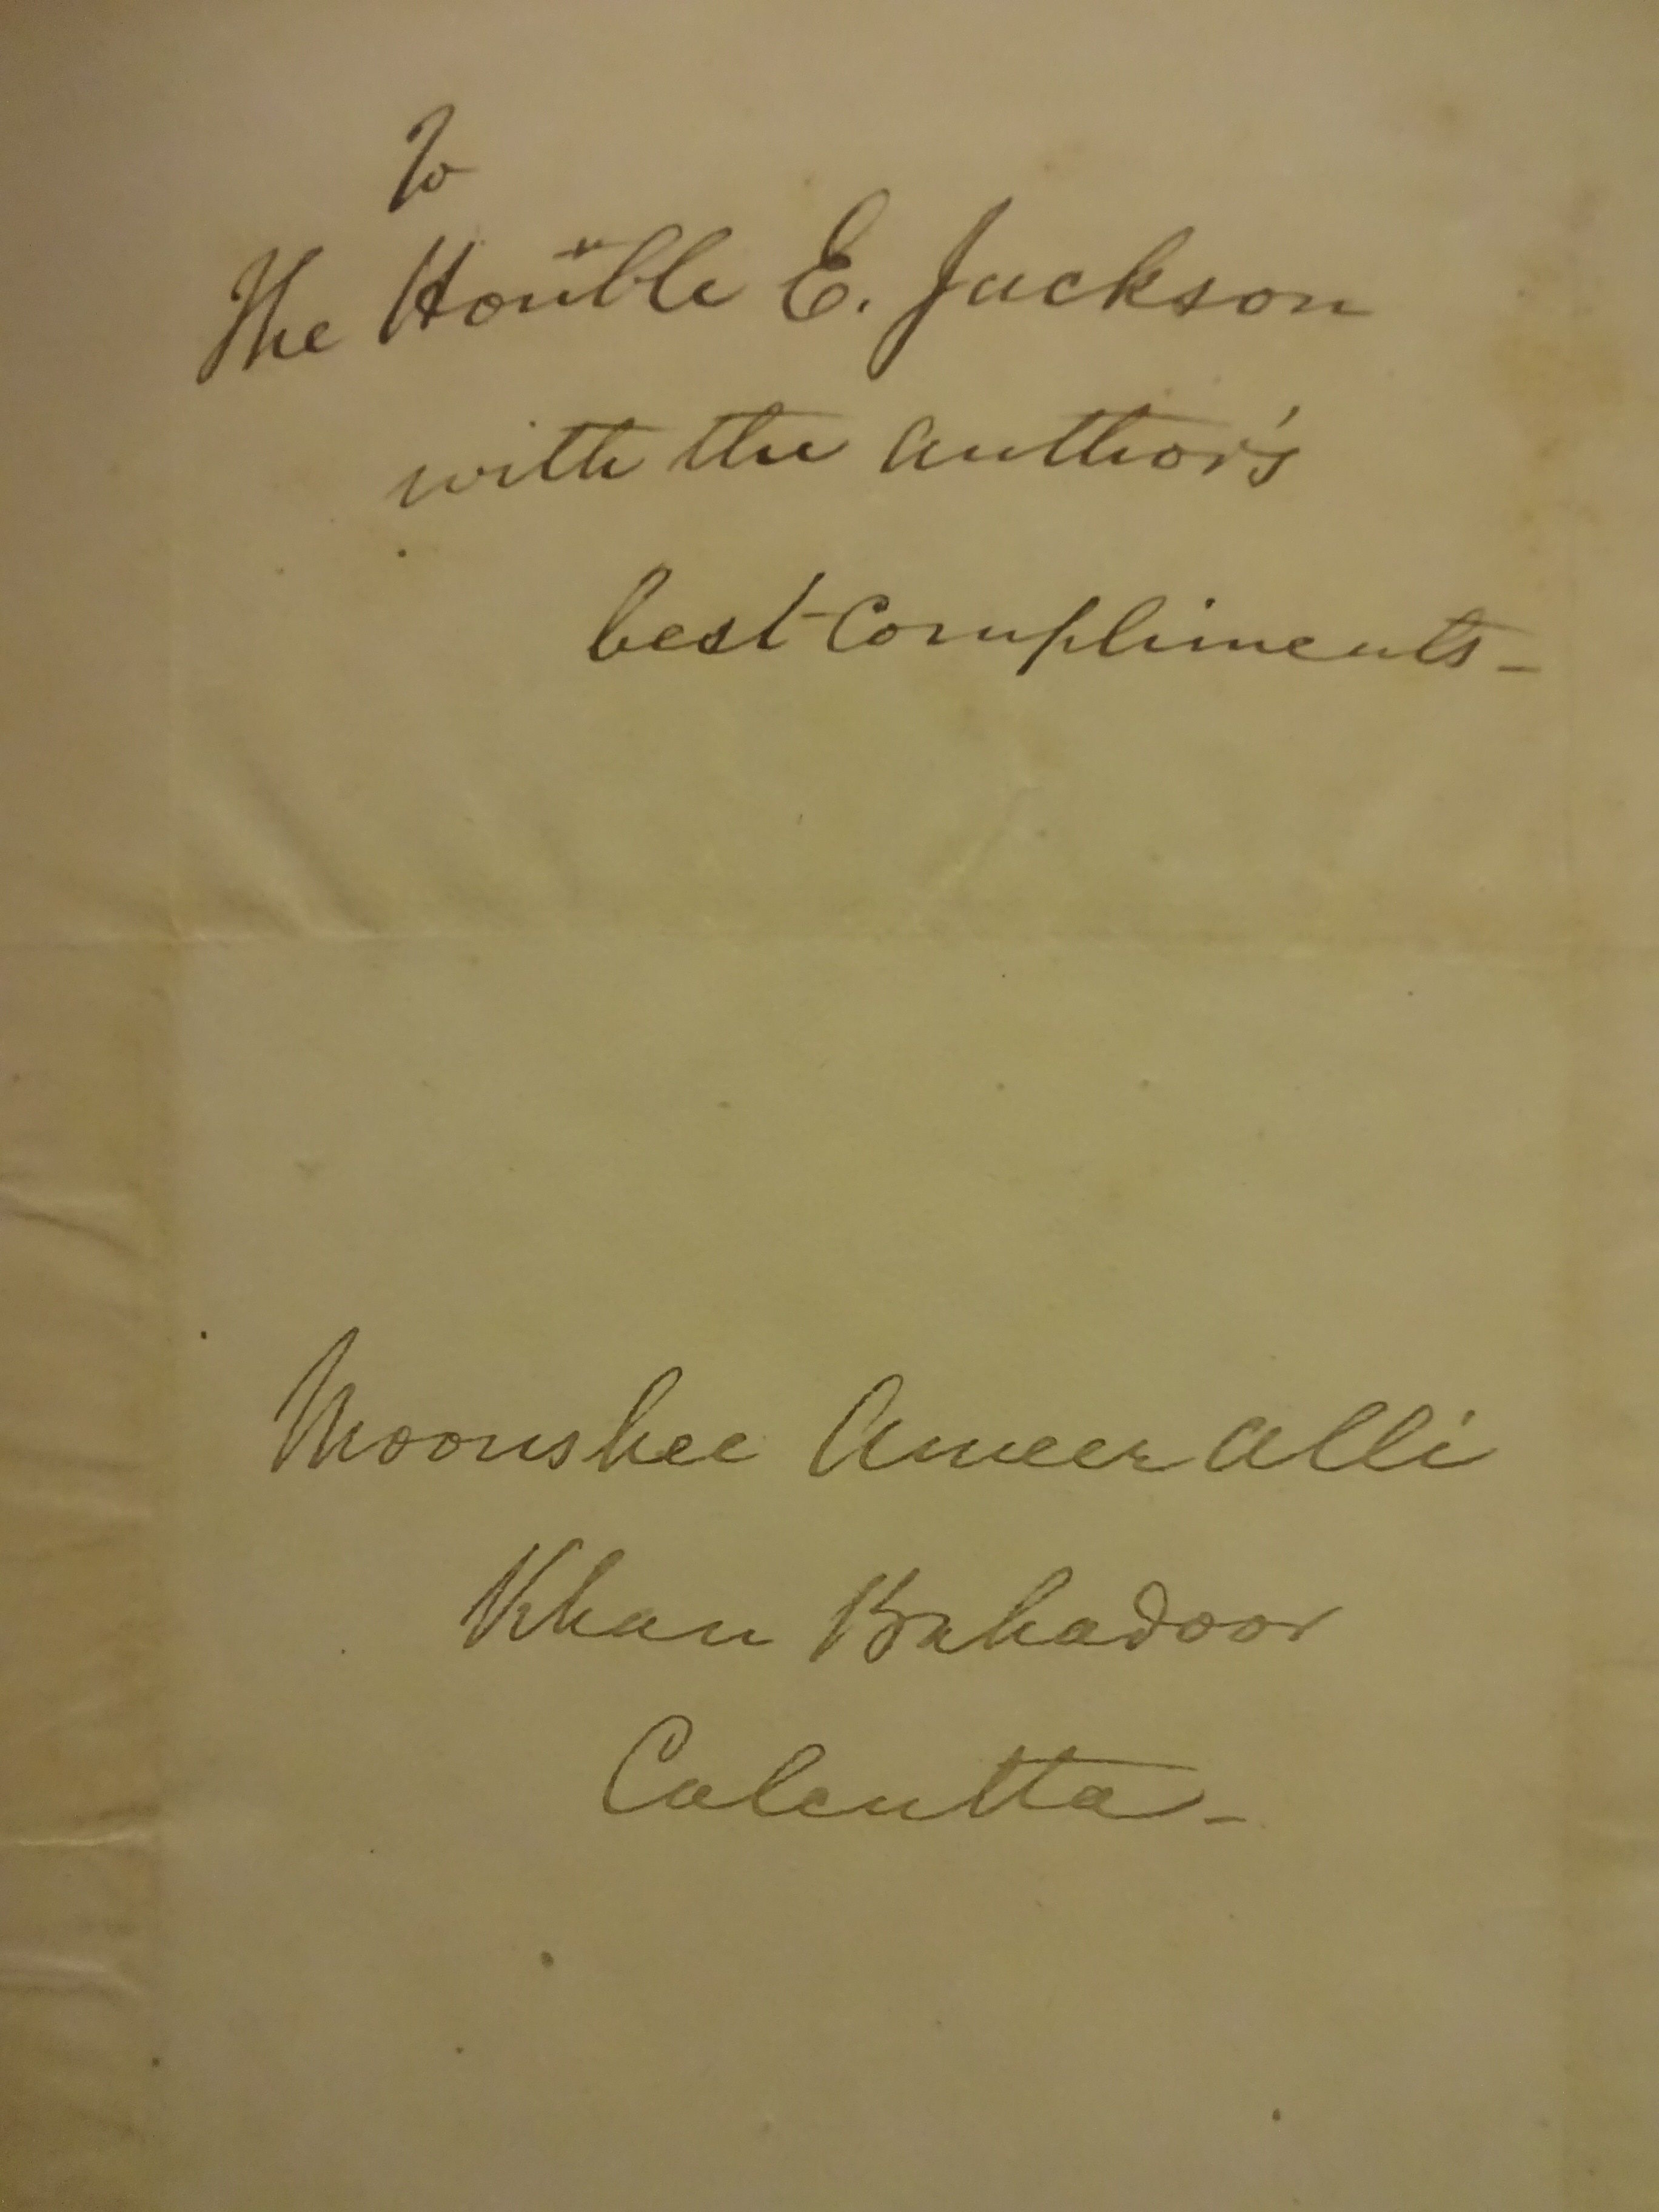 To
The Hon'ble E. Jackson
with the author's
best Compliments -
Moonshee Ameer Alli
Khan Bahadoor
Calcutta -